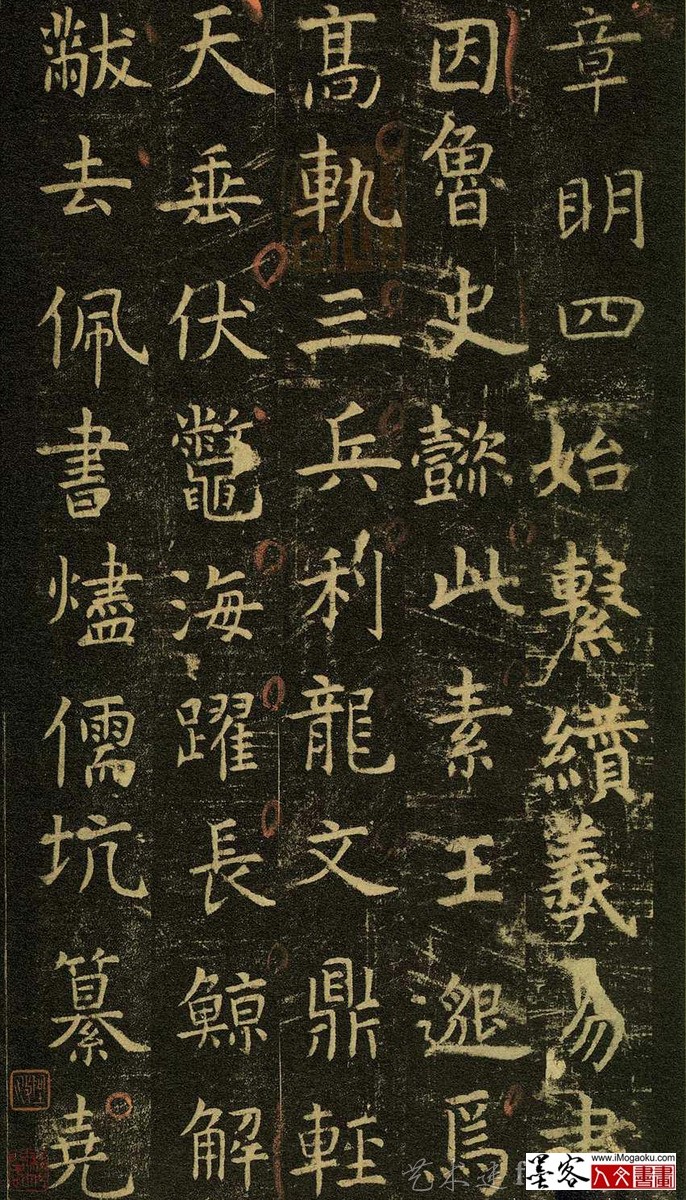 章明四始繫纘羲易書
因魯史懿此素王邈焉
高軌三兵利龍文鼎輕
天垂伏鼈海躍長鯨解
黻去佩書燼儒坑纂堯
墨客
www.iMogaoku.com
人文書畫